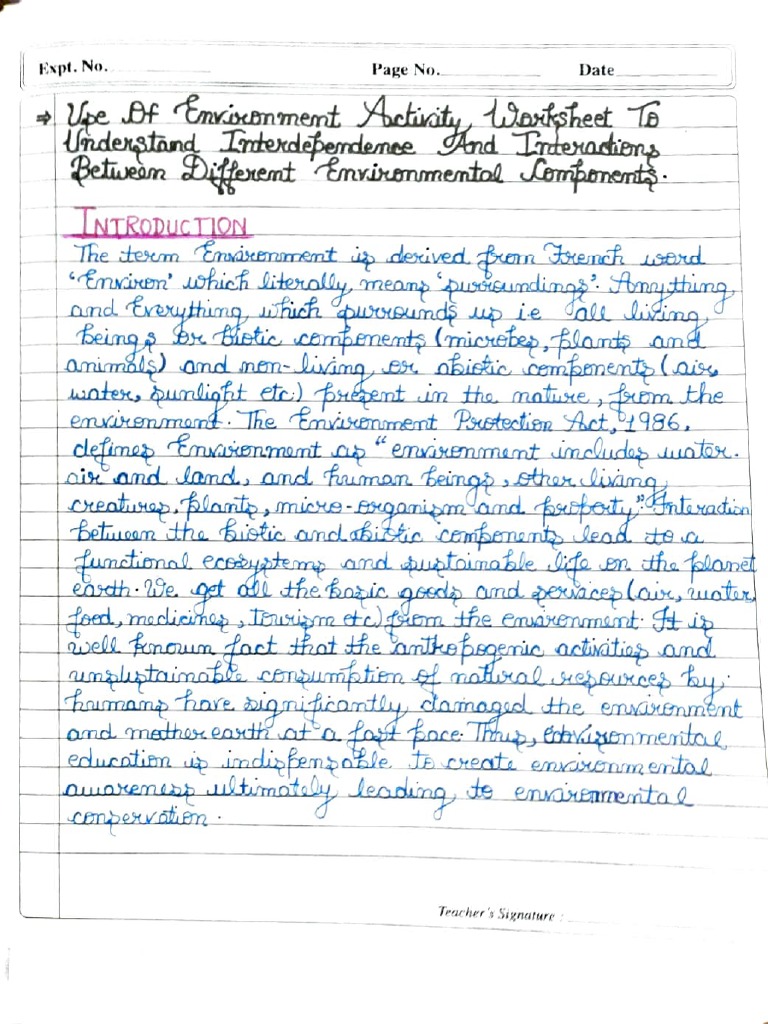 Expt. No. Page No. Date
⇒ Use Of Environment Activity Worksheet To
Understand Interdependence And Interactions
Between Different Environmental Components.
INTRODUCTION
The term Environment is derived from French word
'Environ' which literally means 'surroundings'. Anything
and Everything which surrounds us i.e all living
beings or biotic components (microbes, plants and
animals) and non-living or abiotic components (air,
water, sunlight etc.) present in the nature, from the
environment. The Environment Protection Act, 1986,
defines Environment as "environment includes water.
air and land, and human beings, other living
creatures, plants, micro-organism and property". Interaction
between the biotic and abiotic components lead to a
functional ecosystems and sustainable life on the planet
earth. We get all the basic goods and services (air, water,
food, medicines, tourism etc) from the environment. It is
well known fact that the anthopogenic activities and
unsustainable consumption of natural resources by
humans have significantly damaged the environment
and mother earth at a fast pace. Thus, environmental
education is indispensable to create environmental
awareness ultimately leading to environmental
conservation.
Teacher's Signature :